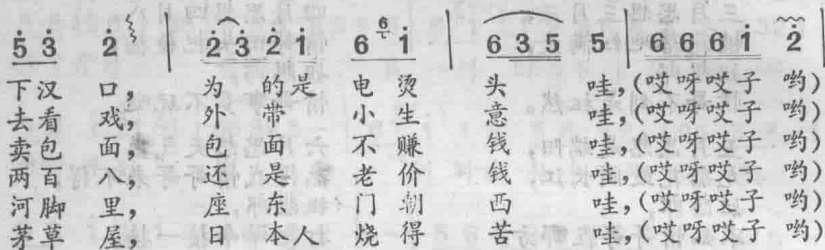 5 3 2 | 2 3 2 1 6 6 1 | 6 3 5 5 | 6 6 6 1 2
下汉 口, 为 的是 电 烫 头 哇,(哎呀哎子 哟)
去看 戏, 外 带 小 生 意 哇,(哎呀哎子 哟)
卖包 面, 包 面 不 赚 钱 哇,(哎呀哎子 哟)
两百 八, 还 是 老 价 钱 哇,(哎呀哎子 哟)
河脚 里, 座 东 门 朝 西 哇,(哎呀哎子 哟)
茅草 屋, 日 本人 烧 得 苦 哇,(哎呀哎子 哟)